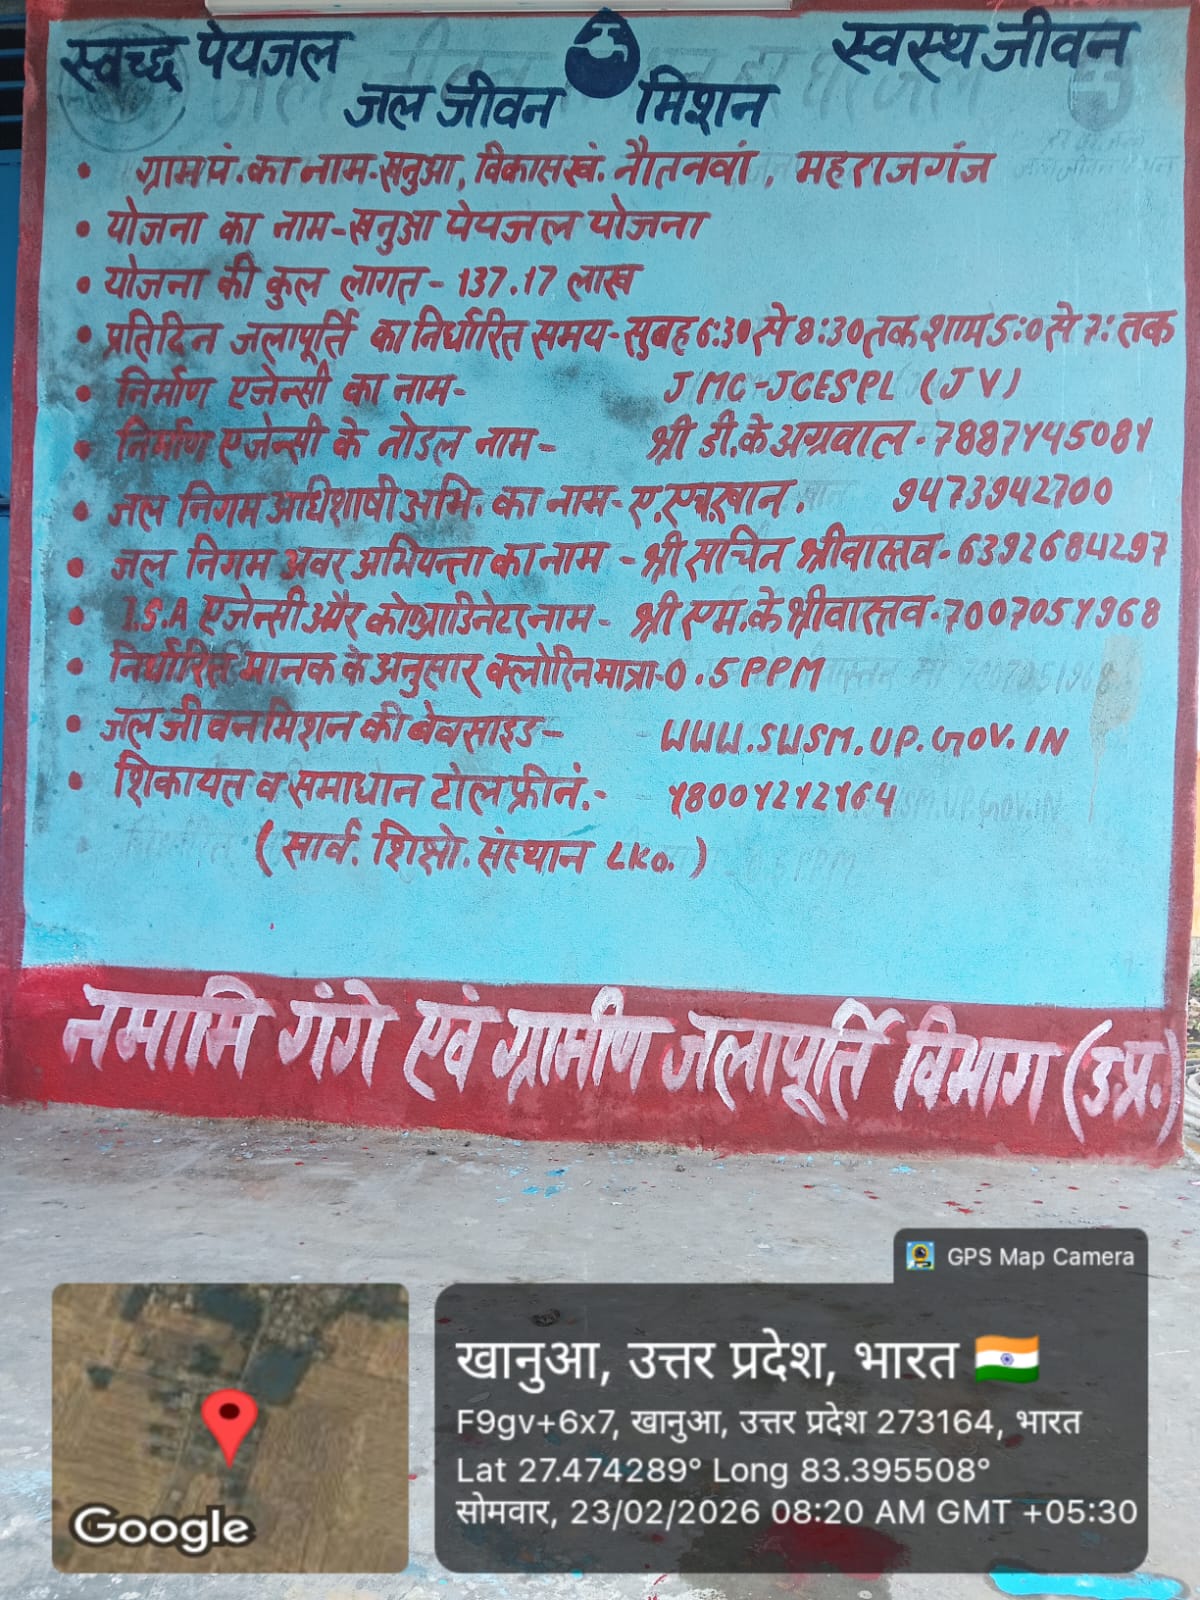 स्वच्छ पेयजल स्वस्थ जीवन
जल जीवन मिशन
• ग्राम पं. का नाम-खनुआ, विकास खं. नौतनवां, महराजगंज
• योजना का नाम-खनुआ पेयजल योजना
• योजना की कुल लागत- 137.17 लाख
• प्रतिदिन जलापूर्ति का निर्धारित समय-सुबह 6:30 से 8:30 तक शाम 5:0 से 7: तक
• निर्माण एजेन्सी का नाम- JMC-JCESPL (JV)
• निर्माण एजेन्सी के नोडल नाम- श्री डी.के अग्रवाल-7887145081
• जल निगम अधिशाषी अभि. का नाम-ए.एच.खान. 9473942700
• जल निगम अवर अभियन्ता का नाम -श्री सचिन श्रीवास्तव-6392684297
• I.S.A एजेन्सी और कोआडिनेटर नाम- श्री एम.के श्रीवास्तव-7007051968
• निर्धारित मानक के अनुसार क्लोरिन मात्रा-0.5 PPM
• जल जीवन मिशन की बेवसाइड- WWW.SWSM.UP.GOV.IN
• शिकायत व समाधान टोल फ्री नं.- 18001212164
(सार्व. शिक्षो. संस्थान LKO.)
नमामि गंगे एवं ग्रामीण जलापूर्ति विभाग (उ.प्र.)
GPS Map Camera
खानुआ, उत्तर प्रदेश, भारत
F9gv+6x7, खानुआ, उत्तर प्रदेश 273164, भारत
Lat 27.474289° Long 83.395508°
सोमवार, 23/02/2026 08:20 AM GMT +05:30
Google